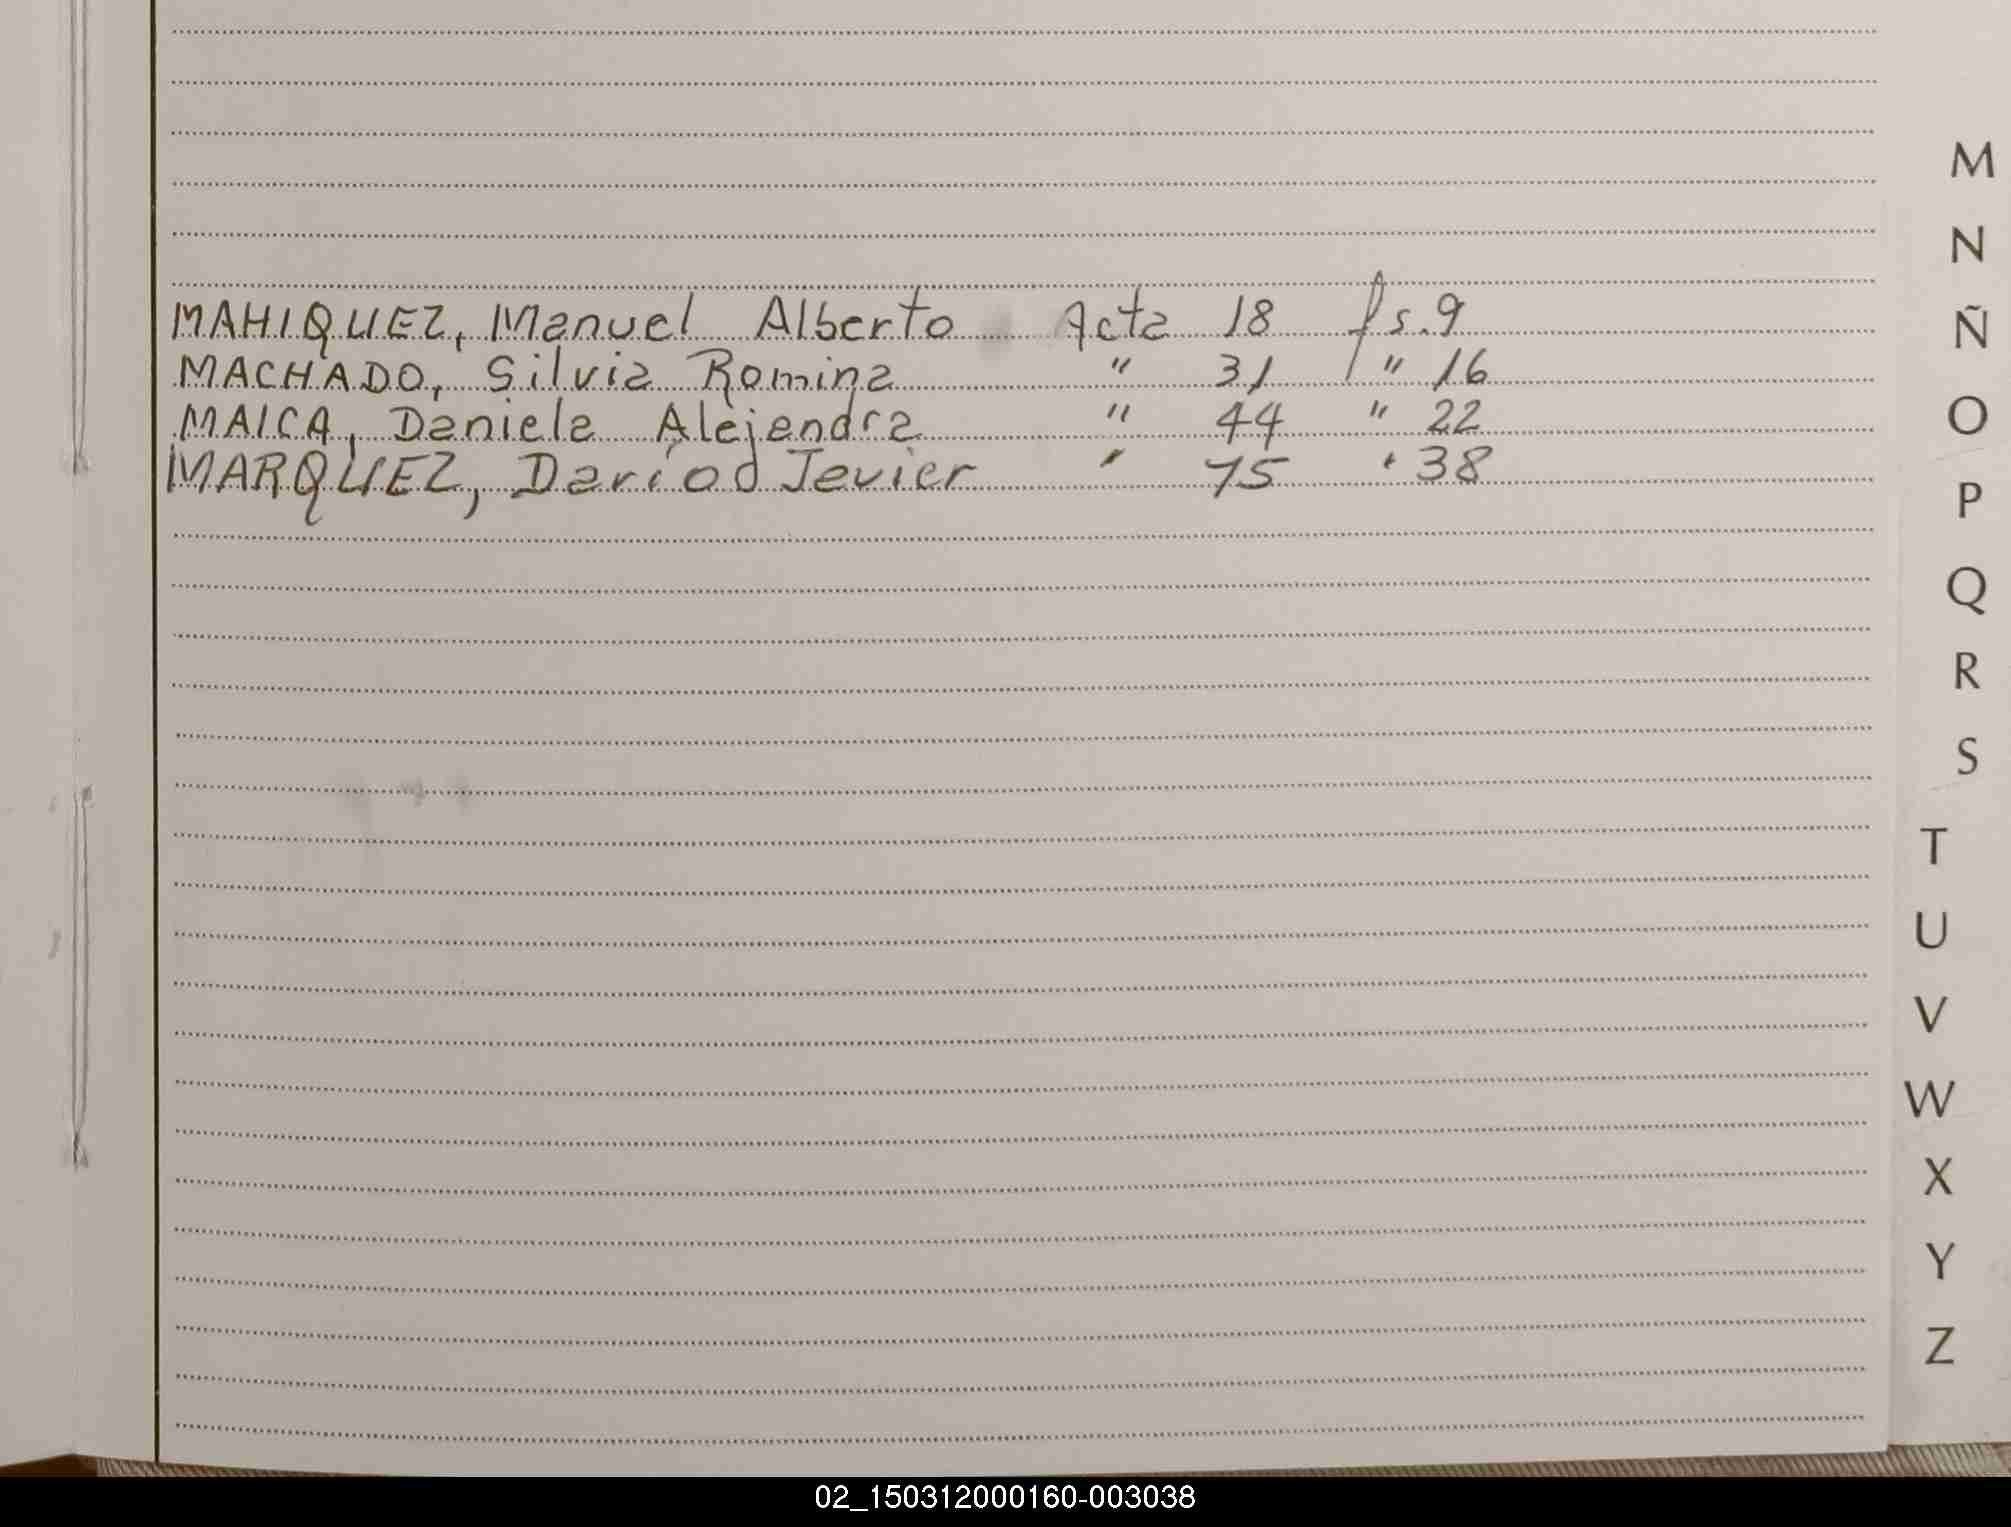 MAHIQUEZ, Manuel Alberto Acta 18 fs. 9
MACHADO, Silvia Romina " 31 " 16
MAICA, Daniela Alejandra " 44 " 22
MARQUEZ, Darío Javier " 75 " 38
M
N
Ñ
O
P
Q
R
S
T
U
V
W
X
Y
Z
02_150312000160-003038